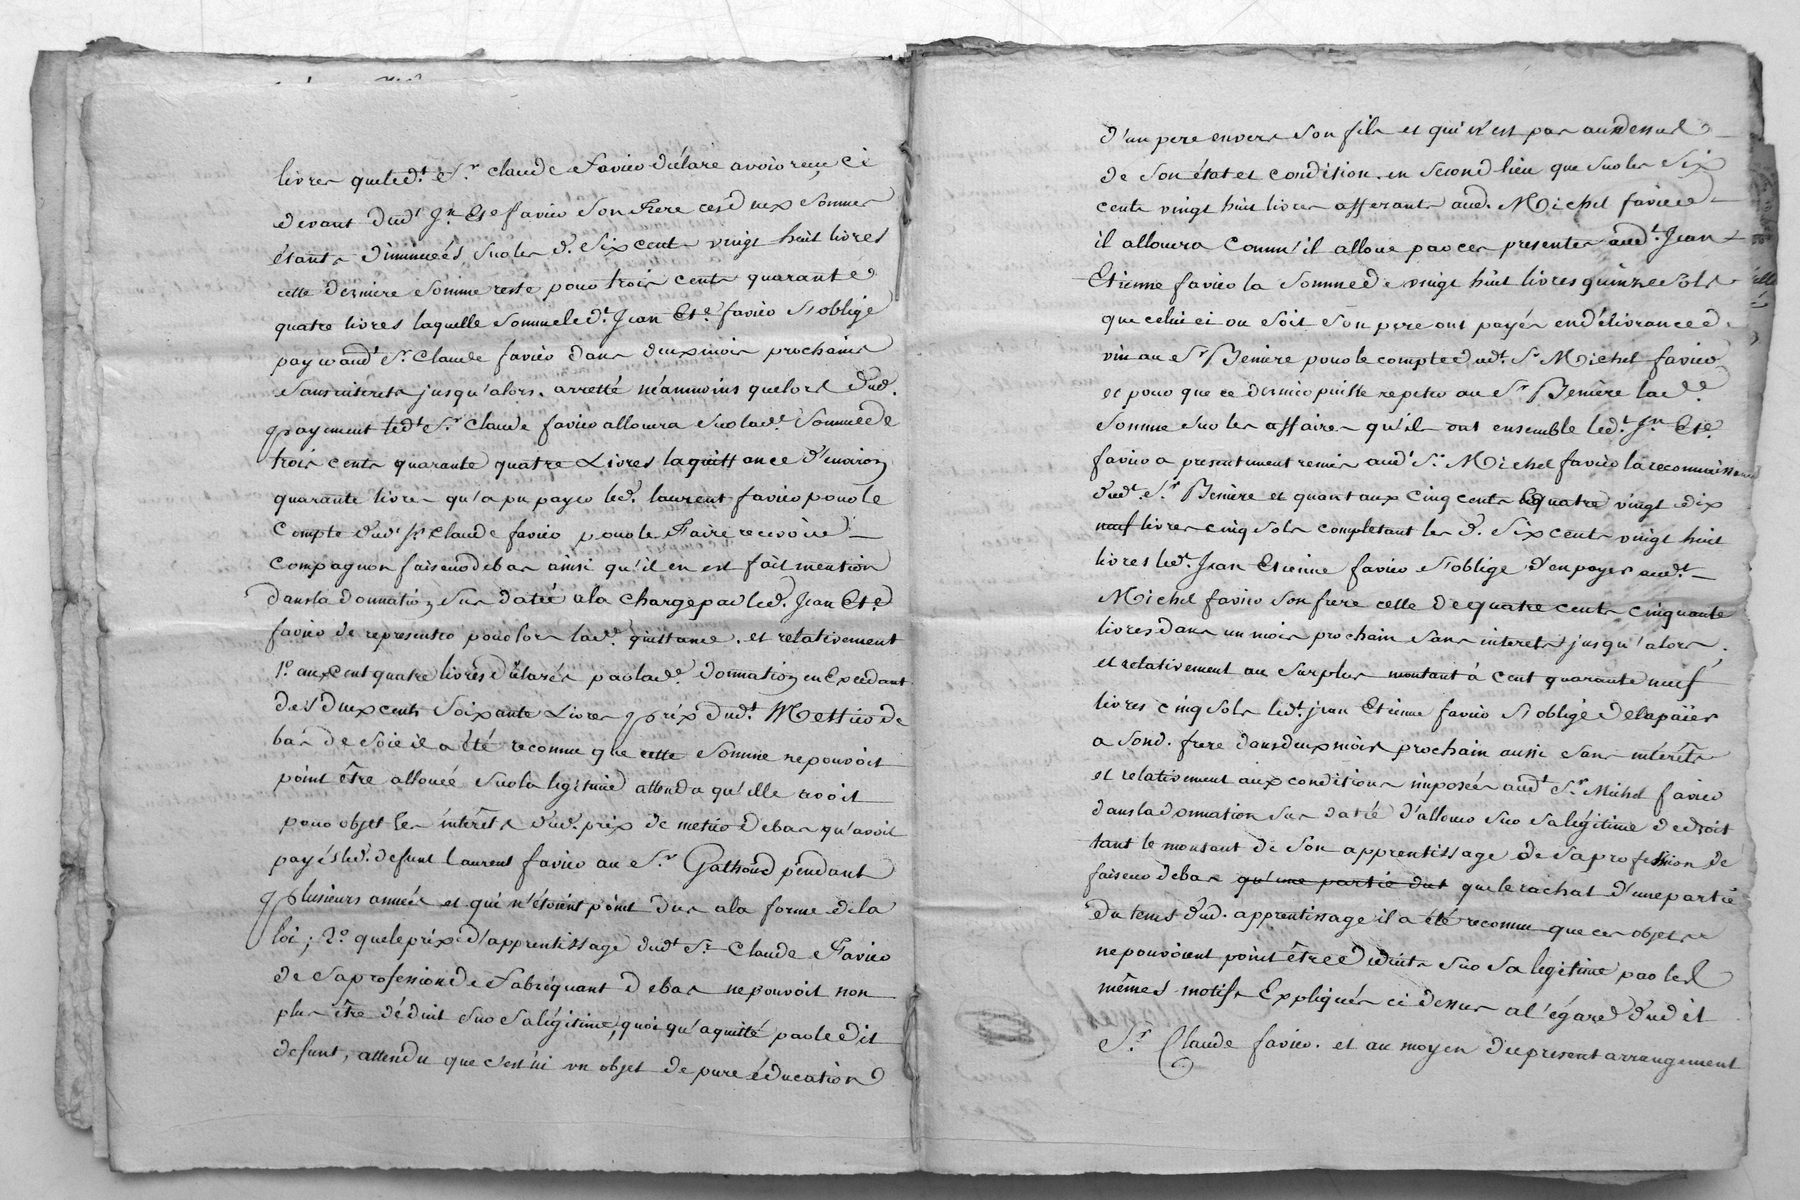 livres que led.t S.r Claude Favier déclare avoir reçu ci
devant dud.t J.n Et.e favier son Frere ces deux sommes
étants diminuées sur les d. Six cents vingt huit livres
cette derniere somme reste pour trois cents quarante
quatre livres laquelle somme led.t Jean Et.e favier s'oblige
payer aud.t S.r Claude favier dans deux mois prochains
sans interets jusqu'alors. arretté néanmoins que lors dud.
payement led.t S.r Claude favier allouera sur lad.e somme de
trois cents quarante quatre Livres la quittance d'environ
quarante livres qu'a pu payer led. laurent favier pour le
Compte dud.t S.r Claude favier pour le Faire recevoir
compagnon faiseur de bas ainsi qu'il en est fait mention
dans la donnation sus datée a la charge par led. Jean Et.e
favier de representer pour lors lad.e quittance. et relativement
1.o aux cent quatre livres déclarés par lad.e donnation en Excedant
des deux cents soixante Livres prix dud.t Mettier de
bas de soie il a été reconnu que cette somme ne pouvoit
point être allouée sur la légitime attendu qu'elle avoit
pour objet les intérêts dud. prix de metier de bas qu'avoit
payés led. defunt Laurent favier au S.r Galhaud pendant
plusieurs années et qui n'étoient point dus a la forme de la
loi; 2.o que le prix d'apprentissage dud.t S.r Claude Favier
de sa profession de Fabriquant de bas ne pouvoit non
plus être déduit sur sa légitime, quoi qu'aquitté par le dit
defunt, attendu que c'est ici un objet de pure éducation
d'un pere envers son fils et qui n'est pas au dessus
de son état et condition. en second lieu que sur les six
cents vingt huit livres afferants aud. Michel favier
il allouera comm'il alloue par ces presentes aud.t Jean
Etienne favier la somme de vingt huit livres quinze sols
que celui ci ou soit son pere ont payés en délivrance de
vin au S.r Benière pour le compte dud.t S.r Michel favier
et pour que ce dernier puisse repeter au S.r Benière lad.e
somme sur les affaires qu'ils ont ensemble led.t J.n Et.e
favier a presentement remis aud.t S.r Michel favier la reconnaissance
dud.t S.r Benière et quant aux cinq cents quatre vingt dix
neuf livres cinq sols completant les d. Six cents vingt huit
livres led. Jean Etienne favier s'oblige d'en payer aud.t
Michel favier son frere celle de quatre cents cinquante
livres dans un mois prochain sans interets jusqu'alors.
et relativement au surplus montant à cent quarante neuf
livres cinq sols led.t jean Etienne favier s'oblige de la païer
a sond. frere dans deux mois prochain aussi sans intérêts
et relativement aux conditions imposées aud.t S.r Michel favier
dans la donnation sus datée d'allouer sur sa légitime de droit
tant le montant de son apprentissage de sa profession de
faiseur de bas qu'une partie dut que le rachat d'une partie
du tems dud. apprentissage il a été reconnu que ces objets
ne pouvoient point être déduits sur sa legitime par les
mêmes motifs Expliqués ci dessus a l'égard dud it
S.r Claude favier. et au moyen du present arrangement